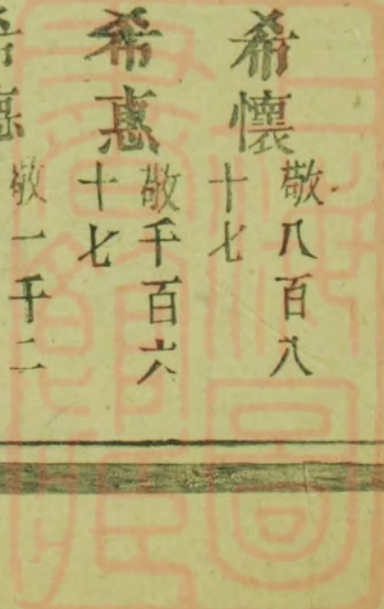 希懷
敬八百八
十七
希惠
敬千百六
十七
敬一千二